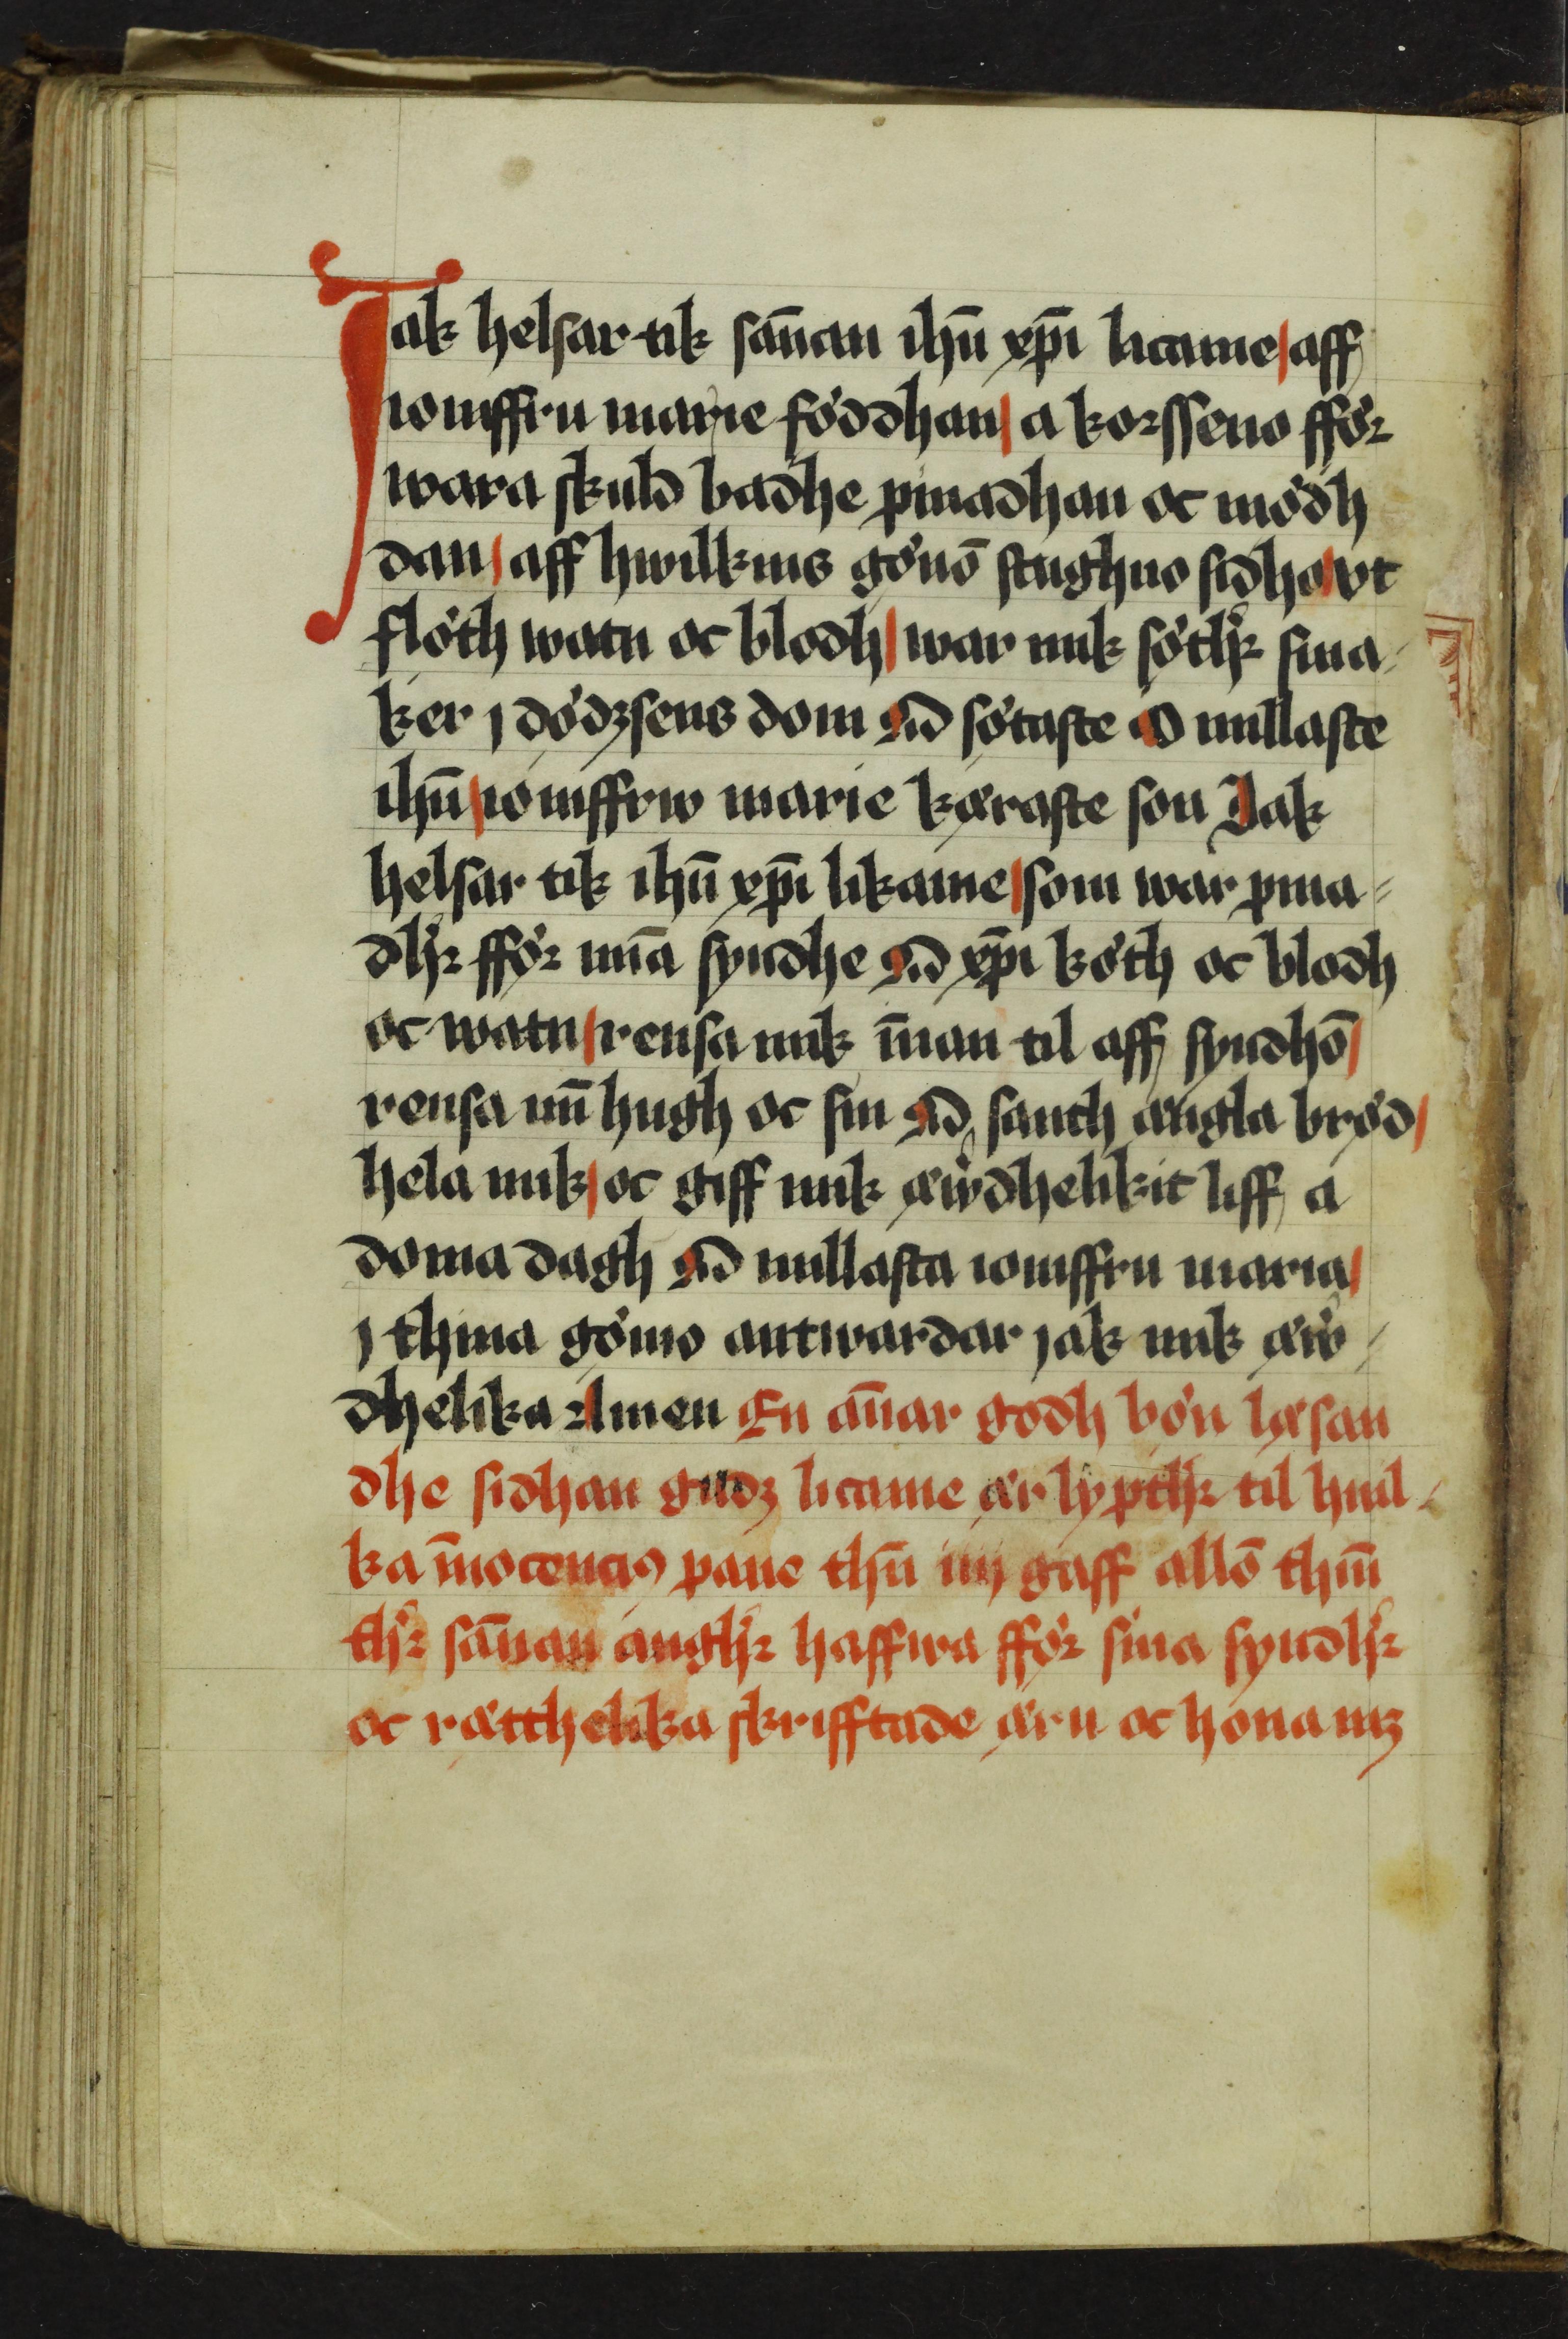 Jak helsar tik sān̄an ihū xp̄i licame / aff
iomffru marie föddhan / a korsseno fför
wara skuld badhe pinadhan oc mödh
dan / aff hwilkins gönō stughno sidho / vt
flöth watn oc blodh / war mik sötlik̉ sma⸗
ker j dödzsens dom O sötaste O millaste
ihū / iomffrw marie käraste son Jak
helsar tik ihū xp̄i likame / som war pina⸗
dh̉r ffór mī̄a syndhe O xp̄i köth oc blodh
oc watn / rensa mik īnan til aff syndhō /
rensa mī̄ hugh oc sin O santh ängla bröd /
hela mik / oc giff mik äwerdhelikit liff a
doma dagh O millasta iomffru maria /
j thina gömo antwardar jak mik äwer⸗
dhelika Amen En ān̄ar godh bön läsan
dhe sidhan gudz licame är lypth̉r til huil⸗
ka īnocencius paue thn̄ iiij gaff allō thm̄
th̉r sān̄an angh̉r haffwa ffór sina syndh̉r
oc rätthelika skrifftade äru oc honamz